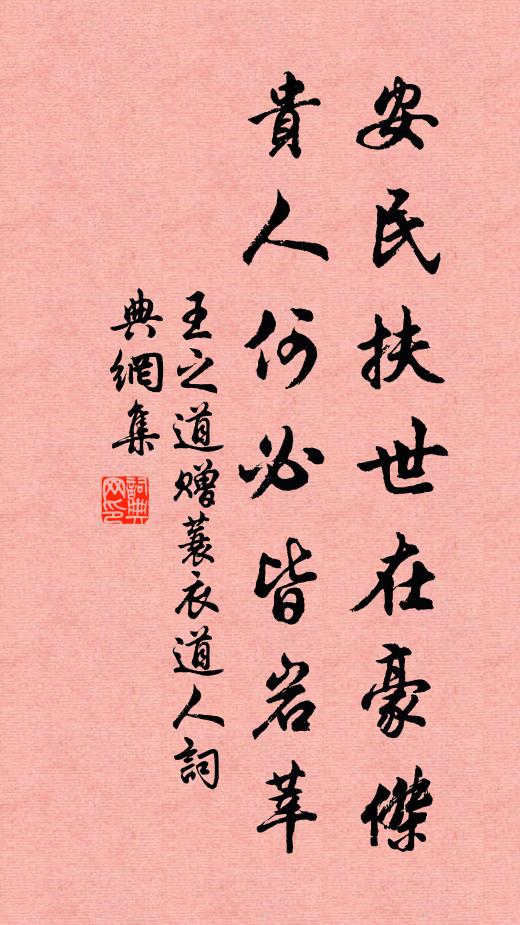 安民扶世在豪傑
貴人何必皆岩莘
王之道贈蓑衣道人詞
典網集
詞典網印